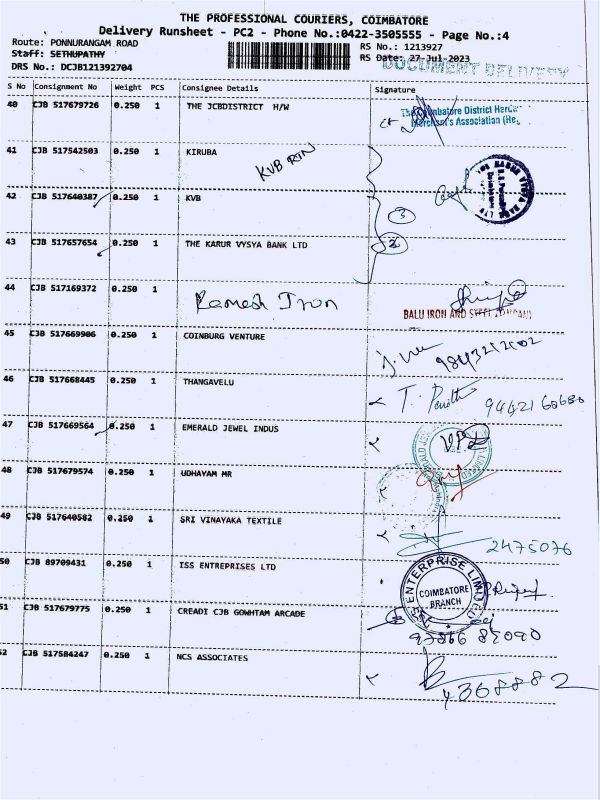 THE PROFESSIONAL COURIERS, COIMBATORE
Delivery Runsheet - PC2 - Phone No.:0422-3505555 - Page No.:4
Route: PONNURANGAM ROAD
Staff: SETHUPATHY
DRS No.: DCJB121392704
RS No.: 1213927
RS Date: 27-Jul-2023
DOCUMENT DELIVERY
S No Consignment No Weight PCS Consignee Details Signature
40 CJB 517679726 0.250 1 THE JCBDISTRICT H/W
District
Merchant's Association
41 CJB 517542503 0.250 1 KIRUBA
KVB RTN
42 CJB 517640387 0.250 1 KVB
3
43 CJB 517657654 0.250 1 THE KARUR VYSYA BANK LTD
44 CJB 517169372 0.250 1 Ramesh Iron
BALU IRON AND STEEL COMPANY
45 CJB 517669906 0.250 1 COINBURG VENTURE
46 CJB 517668445 0.250 1 THANGAVELU
47 CJB 517669564 0.250 1 EMERALD JEWEL INDUS
48 CJB 517679574 0.250 1 UDHAYAM MR
49 CJB 517640582 0.250 1 SRI VINAYAKA TEXTILE
2475076
50 CJB 89709431 0.250 1 ISS ENTREPRISES LTD
ENTERPRISE LIMITED
COIMBATORE
BRANCH
51 CJB 517679775 0.250 1 CREADI CJB GOWHTAM ARCADE
52 CJB 517584247 0.250 1 NCS ASSOCIATES
4368882